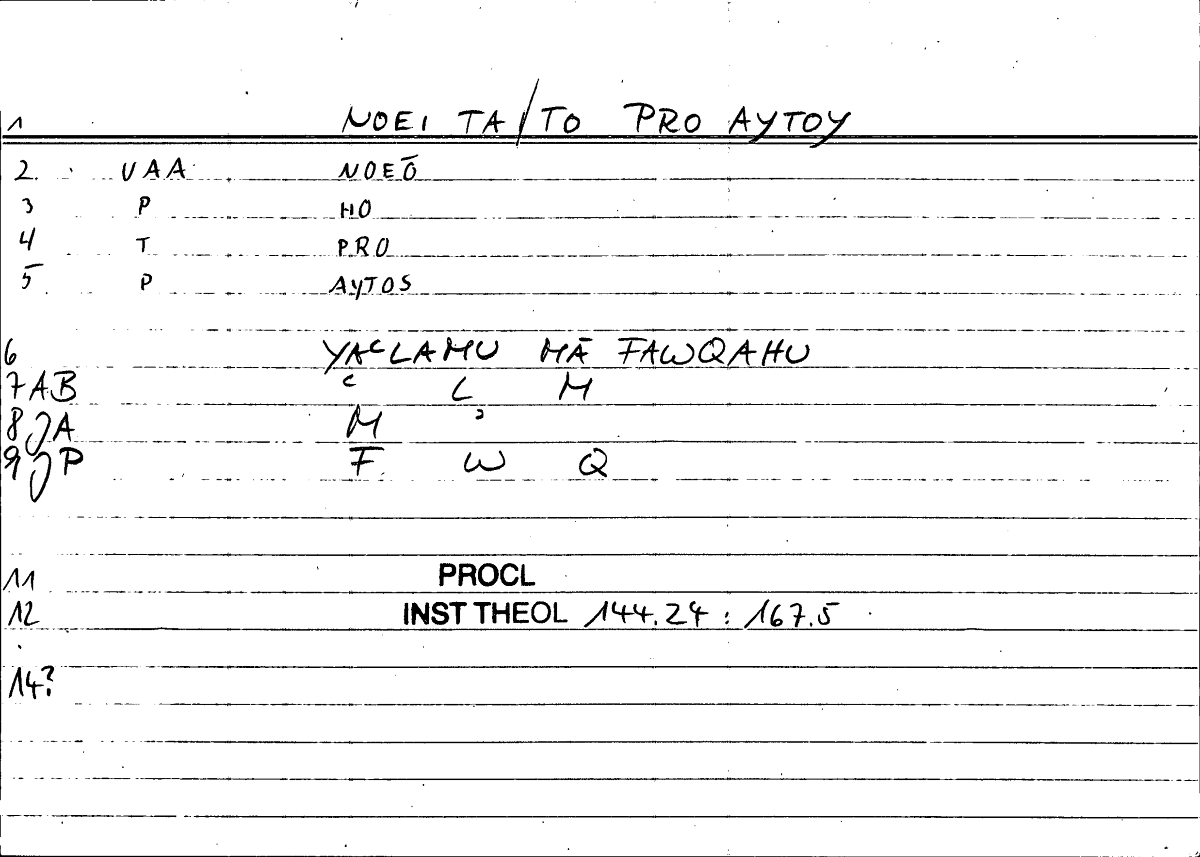 1 NOEI TA/TO PRO AYTOY
2. VAA NOEŌ
3 P HO
4 T PRO
5 P AYTOS
6 YAᶜLAMU MĀ FAWQAHU
7 AB ᶜ L M
8 JA M ᵓ
9 JP F W Q
11 PROCL
12 INST THEOL 144.24 : 167.5
14?